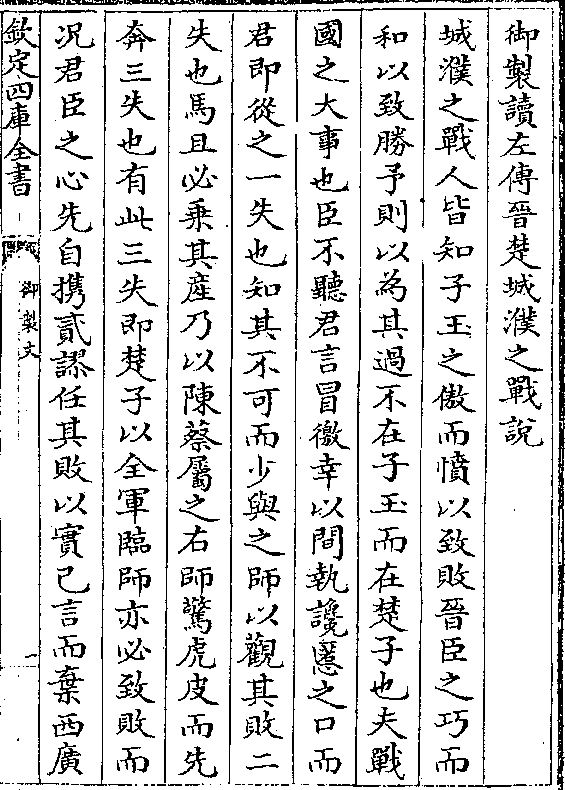 御製讀左傳晉楚城濮之戰說
城濮之戰人皆知子玉之傲而憤以致敗晉臣之巧而
和以致勝予則以為其過不在子玉而在楚子也夫戰
國之大事也臣不聽君言冒徼幸以間執讒慝之口而
君即從之一失也知其不可而少與之師以觀其敗二
失也馬且必乗其產乃以陳蔡屬之右師驚虎皮而先
奔三失也有此三失即楚子以全軍臨師亦必致敗而
况君臣之心先自攜貳謬任其敗以實己言而棄西廣
欽定四庫全書
御製文
一